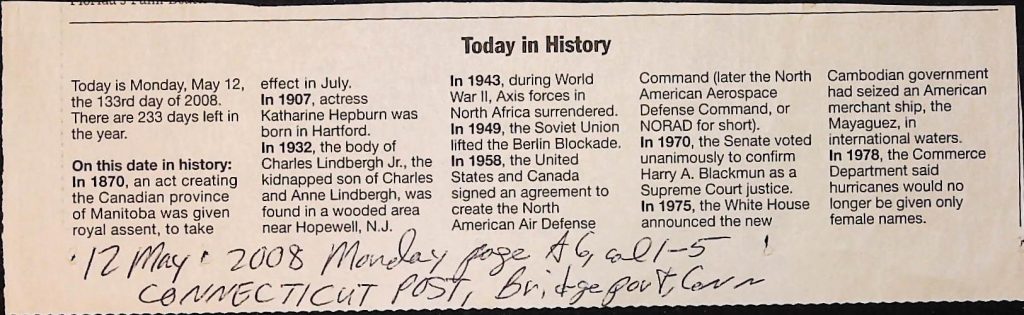 Today in History
Today is Monday, May 12,
the 133rd day of 2008.
There are 233 days left in
the year.
On this date in history:
In 1870, an act creating
the Canadian province
of Manitoba was given
royal assent, to take
effect in July.
In 1907, actress
Katharine Hepburn was
born in Hartford.
In 1932, the body of
Charles Lindbergh Jr., the
kidnapped son of Charles
and Anne Lindbergh, was
found in a wooded area
near Hopewell, N.J.
In 1943, during World
War II, Axis forces in
North Africa surrendered.
In 1949, the Soviet Union
lifted the Berlin Blockade.
In 1958, the United
States and Canada
signed an agreement to
create the North
American Air Defense
Command (later the North
American Aerospace
Defense Command, or
NORAD for short).
In 1970, the Senate voted
unanimously to confirm
Harry A. Blackmun as a
Supreme Court justice.
In 1975, the White House
announced the new
Cambodian government
had seized an American
merchant ship, the
Mayaguez, in
international waters.
In 1978, the Commerce
Department said
hurricanes would no
longer be given only
female names.
12 May 2008 Monday page A6, col 1-5
CONNECTICUT POST, Bridgeport, Conn